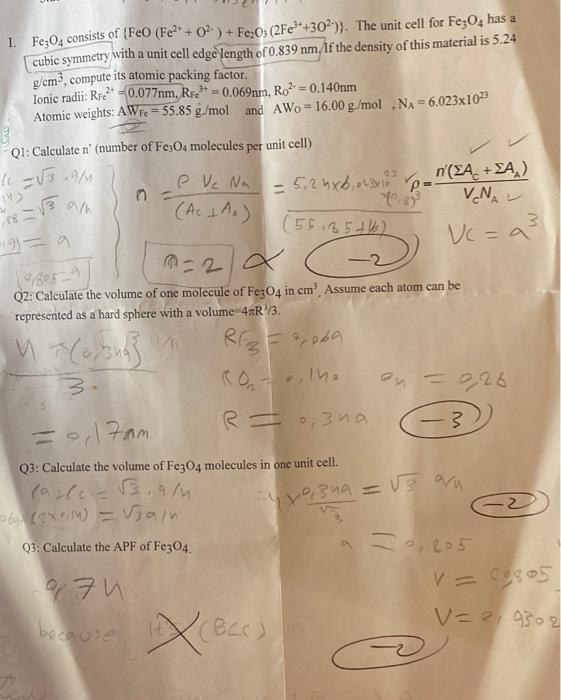 I. Fe₃O₄ consists of {FeO (Fe²⁺ + O²⁻) + Fe₂O₃ (2Fe³⁺+3O²⁻)}. The unit cell for Fe₃O₄ has a
cubic symmetry with a unit cell edge length of 0.839 nm. If the density of this material is 5.24
g/cm³, compute its atomic packing factor.
Ionic radii: R_Fe²⁺ = 0.077nm, R_Fe³⁺ = 0.069nm, Ro²⁻ = 0.140nm
Atomic weights: AW_Fe = 55.85 g./mol and AWo = 16.00 g./mol , N_A = 6.023x10²³
Q1: Calculate n' (number of Fe₃O₄ molecules per unit cell)
= √3 . a/4
= √3 a/4
= a
0,805 = a
n = ρ Vc Na / (Ac + Aa)
(55,85+16)
ρ = n'(ΣA_C + ΣA_A) / V_C N_A
n = 2
-2
Vc = a³
Q2: Calculate the volume of one molecule of Fe₃O₄ in cm³. Assume each atom can be
represented as a hard sphere with a volume=4πR³/3.
RF₃ = 0,069
3
= 0,17nm
R =
-3
Q3: Calculate the volume of Fe₃O₄ molecules in one unit cell.
= √3 . a/4
= √3 a/4
= √3 a/4
-2
a = 0,805
Q3: Calculate the APF of Fe₃O₄.
0,74
V =
V = 0,9302
because it (BCC)
-2